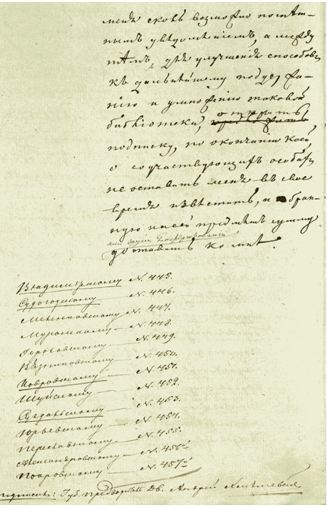 меня сколь возможно поспѣш-
нымъ увѣдомленіемъ, а между
тѣмъ, для улучшенія способовъ
къ дальнѣйшему поддержа-
нію и умноженію таковой
библіотеки, открыть
подписку, по окончаніи коей
о соучаствующихъ особахъ
не оставить меня въ свое
время извѣстить, и собран-
ную на сей предметъ сумму
доставить ко мнѣ.
Владимирскому № 445.
Судогодскому № 446.
Меленковскому № 447.
Муромскому № 448.
Гороховскому № 449.
Вязниковскому № 450.
Ковровскому № 451.
Шуйскому № 452.
Суздальскому № 453.
Юрьевскому № 454.
Переславскому № 455.
Александровскому № 456.
Покровскому № 457.
Губ. Предводитель Дв. Андрей